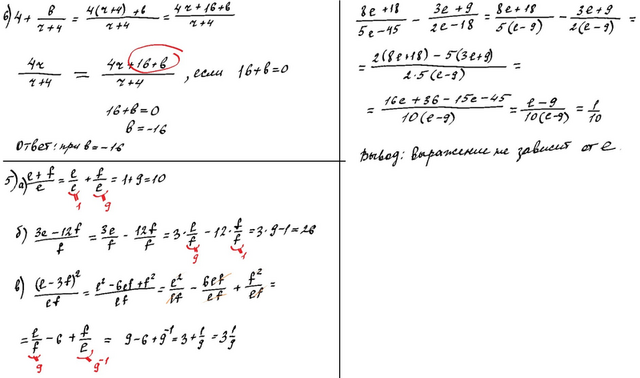 в) 4 + в/(r+4) = (4(r+4)+в)/(r+4) = (4r+16+в)/(r+4)
4r/(r+4) = (4r+16+в)/(r+4), если 16+в=0
16+в=0
в=-16
Ответ: при в=-16
5) а) (e+f)/e = e/e + f/e = 1+9=10
1 9
б) (3e-12f)/f = 3e/f - 12f/f = 3·e/f - 12·f/f = 3·9-1=26
9 1
в) (e-3f)²/ef = (e²-6ef+f²)/ef = e²/ef - 6ef/ef + f²/ef =
= e/f - 6 + f/e = 9-6+9⁻¹=3+1/9=3 1/9
9 9⁻¹
(8e+18)/(5e-45) - (3e+9)/(2e-18) = (8e+18)/(5(e-9)) - (3e+9)/(2(e-9)) =
= (2(8e+18)-5(3e+9))/(2·5(e-9)) =
= (16e+36-15e-45)/(10(e-9)) = (e-9)/(10(e-9)) = 1/10
Вывод: выражение не зависит от e.